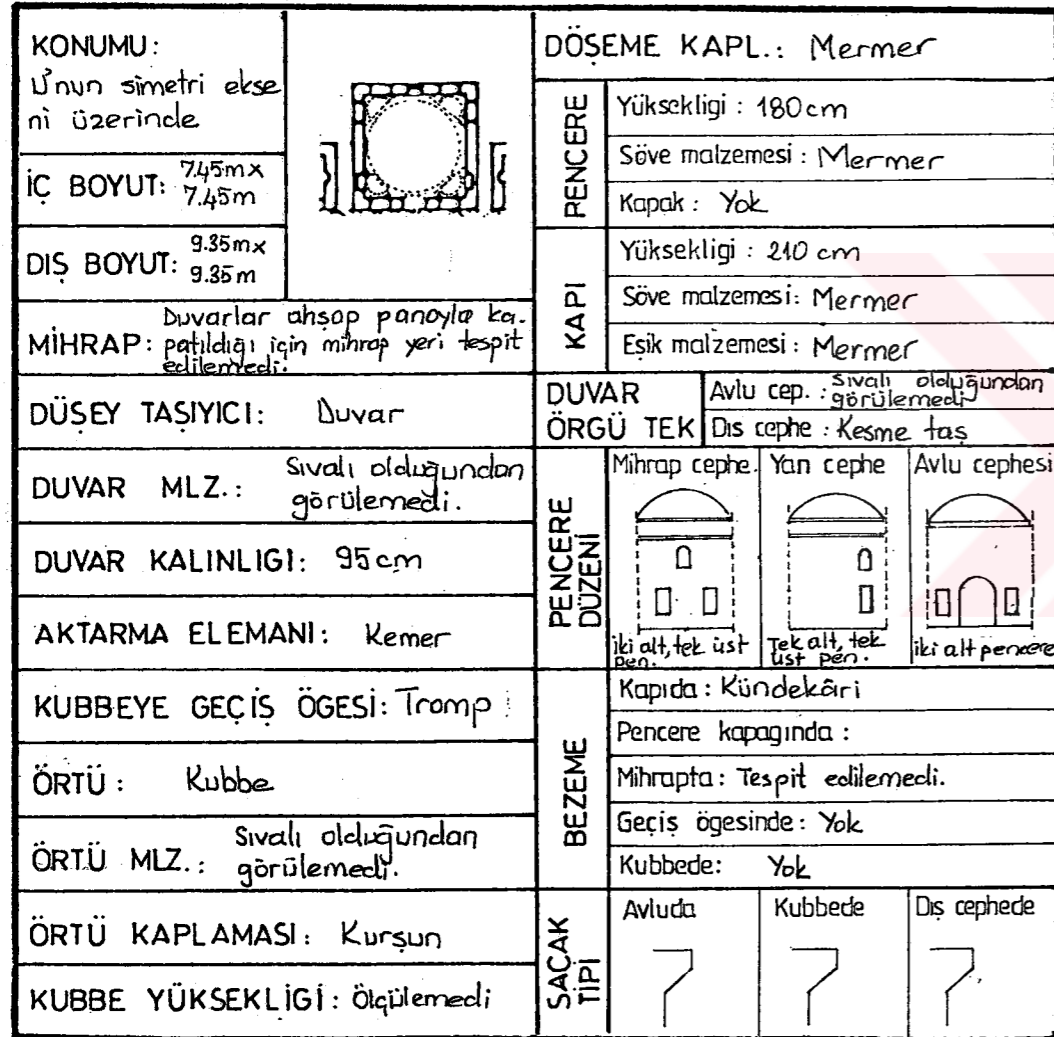 KONUMU:
U'nun simetri ekse
ni üzerinde
İÇ BOYUT: 7.45m x
7.45m
DIŞ BOYUT: 9.35m x
9.35m
MİHRAP: Duvarlar ahşap panoyla ka-
patıldığı için mihrap yeri tespit
edilemedi.
DÜŞEY TAŞIYICI: Duvar
DUVAR MLZ.: Sıvalı olduğundan
görülemedi.
DUVAR KALINLIGI: 95cm
AKTARMA ELEMANI: Kemer
KUBBEYE GEÇİŞ ÖGESİ: Tromp
ÖRTÜ: Kubbe
ÖRTÜ MLZ.: Sıvalı olduğundan
görülemedi.
ÖRTÜ KAPLAMASI: Kurşun
KUBBE YÜKSEKLİGİ: Ölçülemedi
DÖŞEME KAPL.: Mermer
PENCERE
Yüksekligi: 180cm
Söve malzemesi: Mermer
Kapak: Yok
KAPI
Yüksekligi: 210 cm
Söve malzemesi: Mermer
Eşik malzemesi: Mermer
DUVAR
ÖRGÜ TEK
Avlu cep.: Sıvalı olduğundan
görülemedi
Dıs cephe: Kesme taş
PENCERE
DÜZENİ
Mihrap cephe. Yan cephe Avlu cephesi
iki alt, tek üst
pen.
Tek alt, tek
üst pen.
iki alt pencere
BEZEME
Kapıda: Kündekâri
Pencere kapagında:
Mihrapta: Tespit edilemedi.
Geçiş ögesinde: Yok
Kubbede: Yok
SAÇAK
TİPİ
Avluda Kubbede Dış cephede